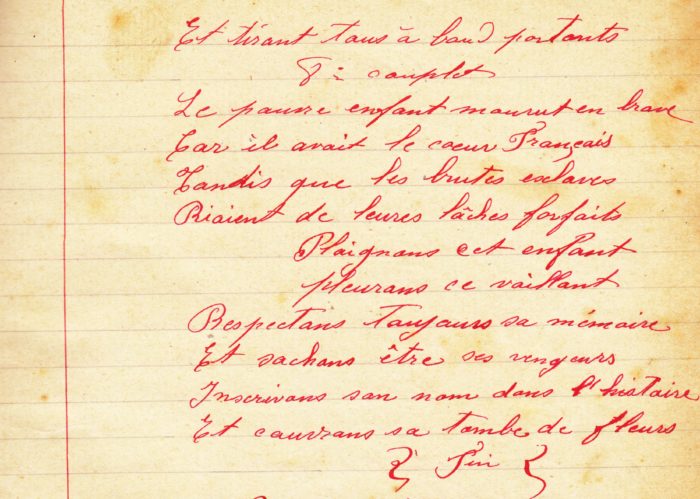 Et tirant tous à boud portents
8e couplet
Le pauvre enfant mourut en brave
Car il avait le coeur Français
Tandis que les brutes esclaves
Riaient de leures lâches forfaits
Plaignons cet enfant
pleurons ce vaillant
Respectons toujours sa mémoire
Et sachons être ses vengeurs
Inscrivons son nom dans l'histoire
Et couvrons sa tombe de fleurs
Fin